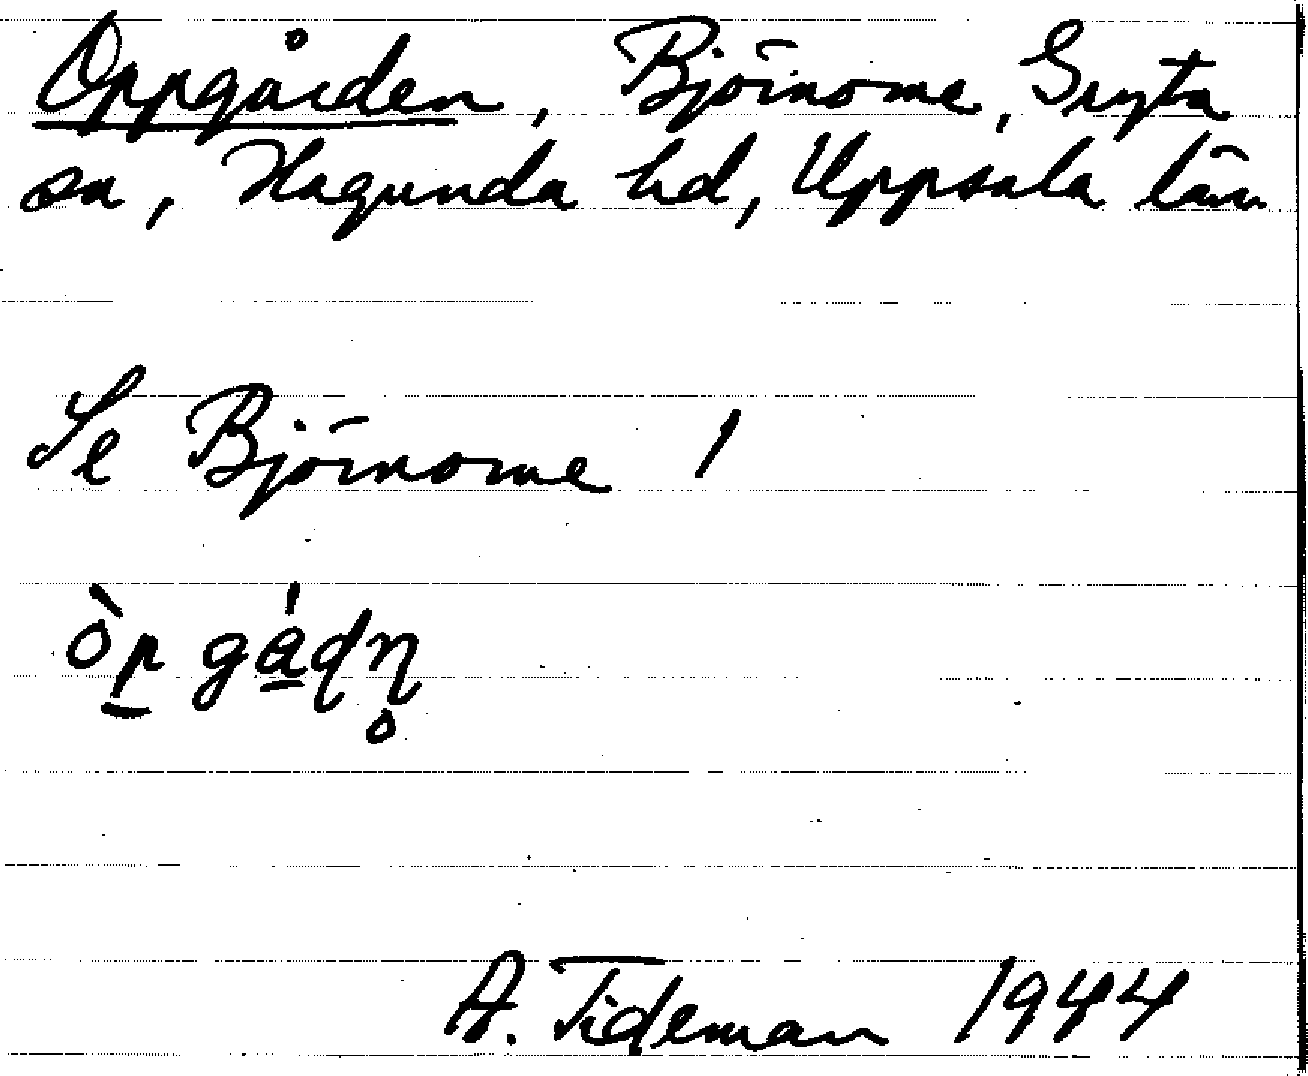 Oppgården, Björnome, Gryta
sn, Hagunda hd, Uppsala län
Se Björnome 1
A. Tideman 1944